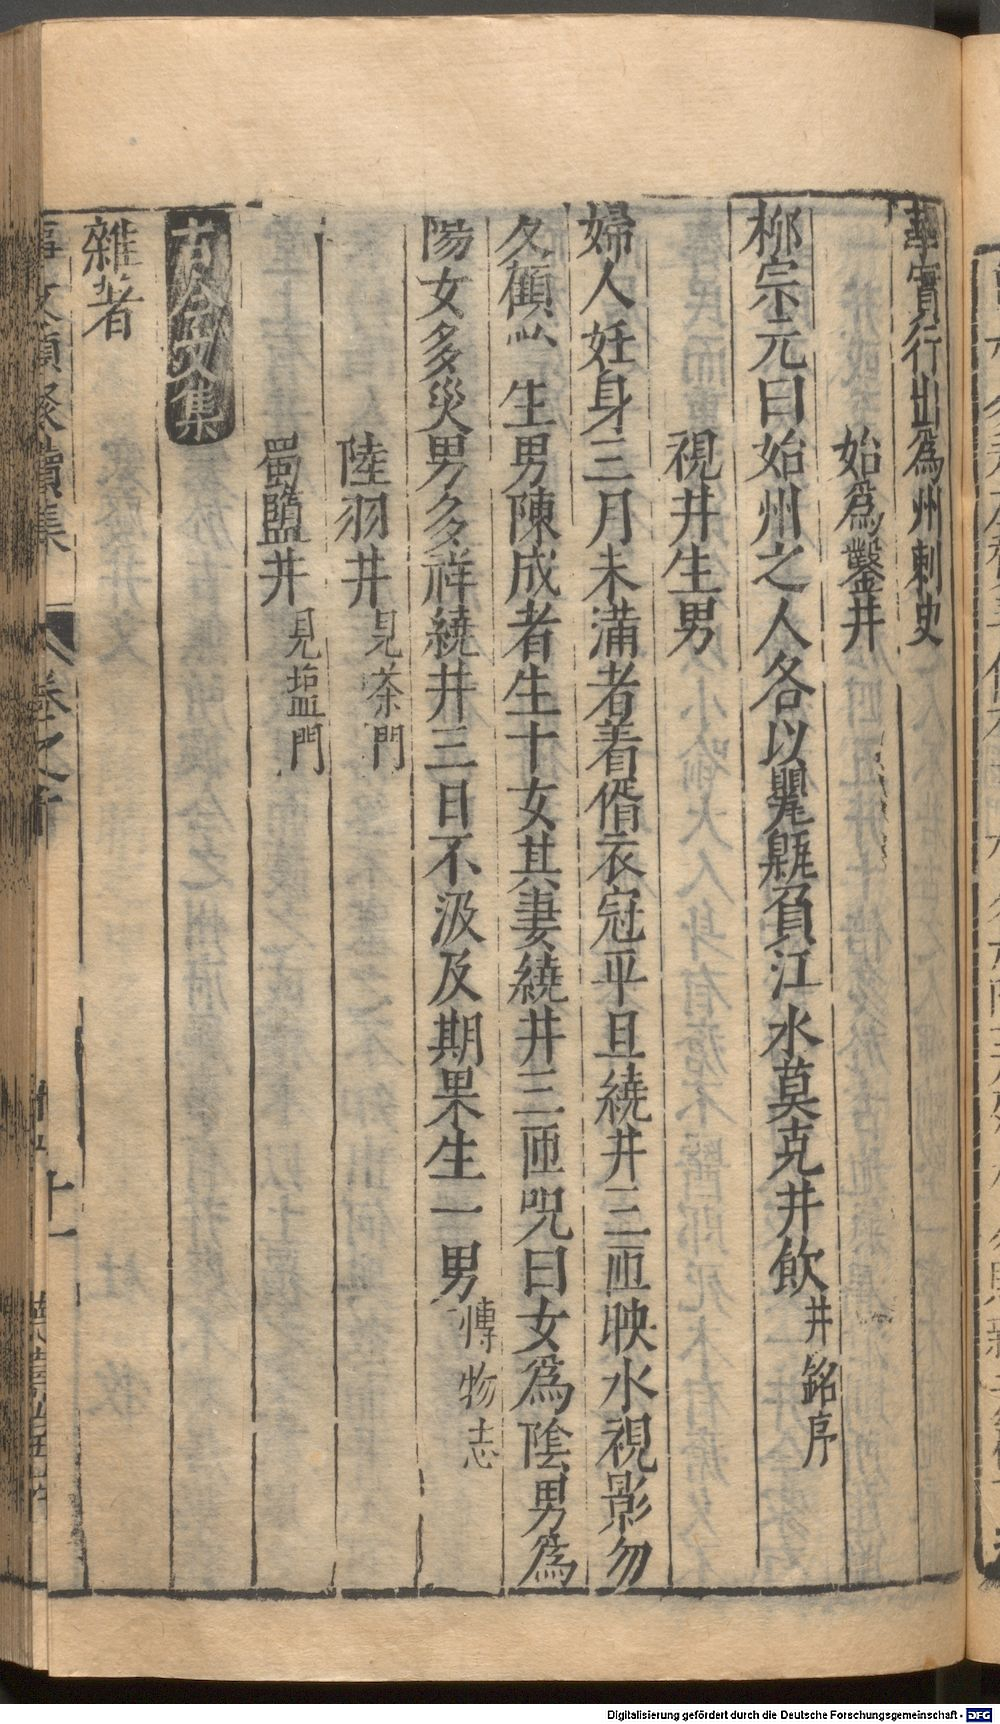 華實行出爲州刺史
始爲鑿井
柳宗元曰始州之人各以甖瓶負江水莫克井飲井銘序
視井生男
婦人妊身三月未滿者着㑉衣冠平旦繞井三匝映水視影勿
生男陳成者生十女其妻繞井三匝呪曰女爲陰男爲
陽女多災男多祥繞井三日不汲及期果生一男博物志
陸羽井見茶門
蜀鹽井見塩門
古今文集
雜著
事文類聚續集 卷之十 十一
Digitalisierung gefördert durch die Deutsche Forschungsgemeinschaft - DFG